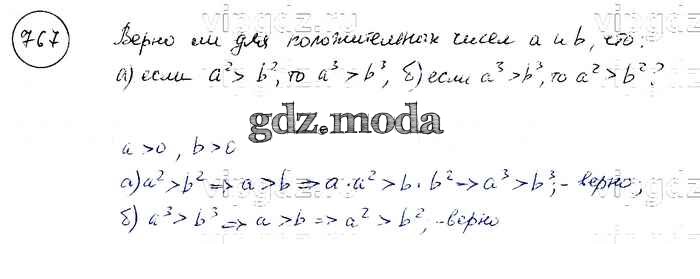 767 Верно ли для положительных чисел a и b, что:
а) если a² > b², то a³ > b³, б) если a³ > b³, то a² > b²?
gdz.moda
a > 0, b > 0
а) a² > b² => a > b => a · a² > b · b² => a³ > b³; - верно;
б) a³ > b³ => a > b => a² > b², - верно